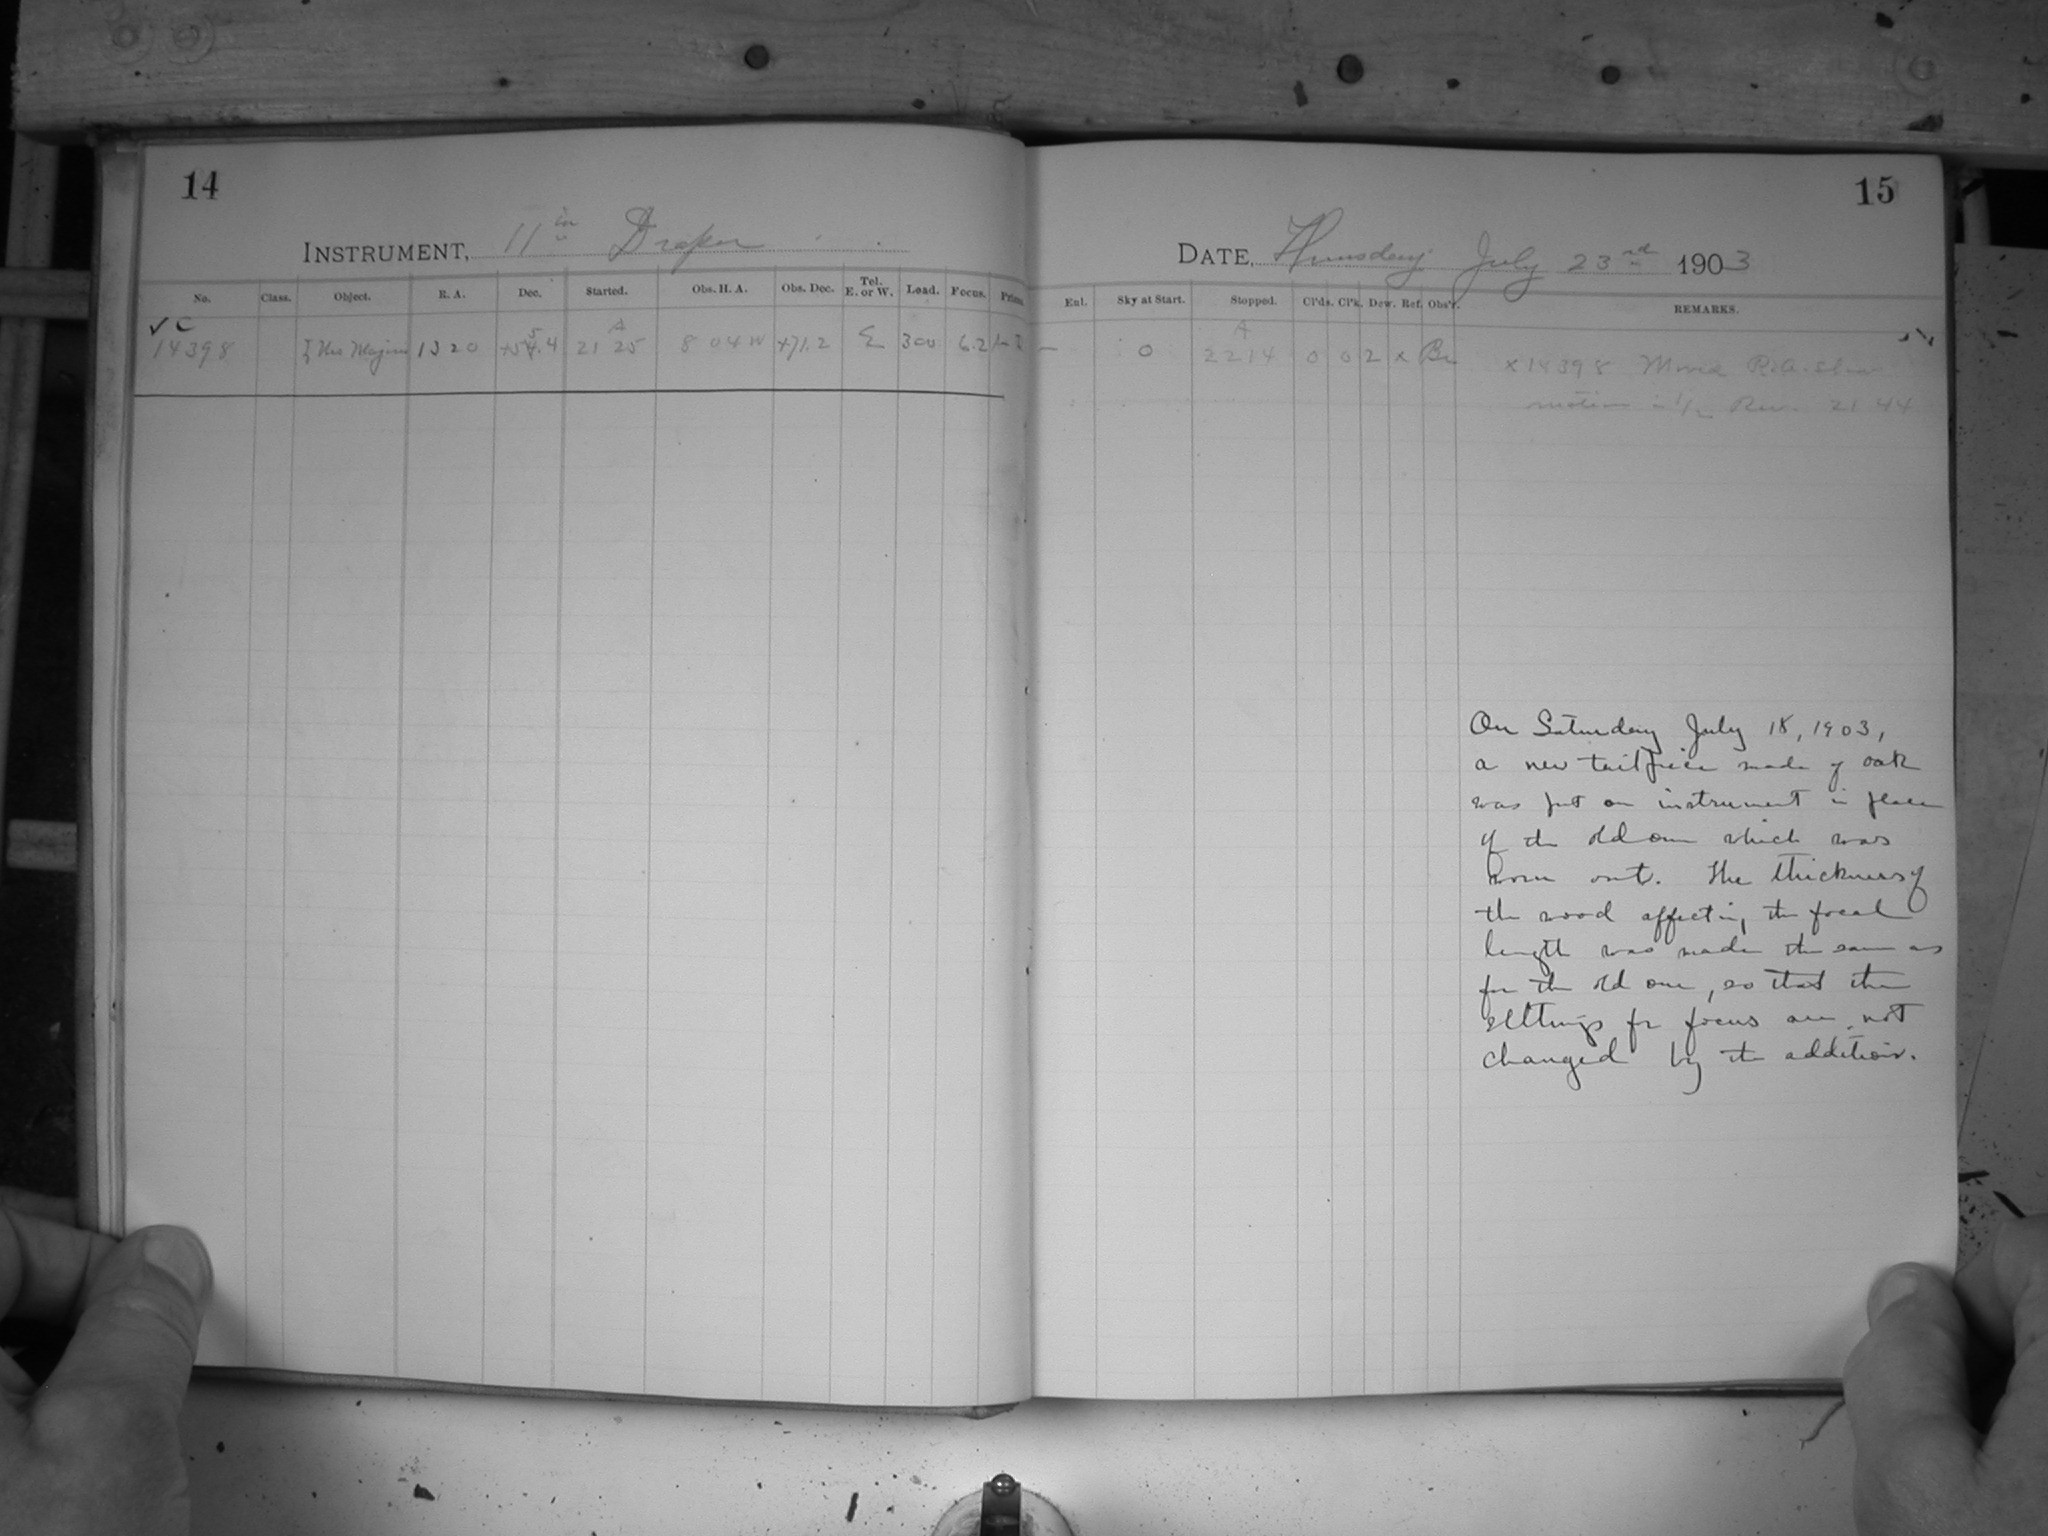 14
INSTRUMENT, 11 in Draper
No. Class. Object. R. A. Dec. Started. Obs. H. A. Obs. Dec. Tel. E. or W. Load. Focus. Prisms
✓ C
14398 ζ Urs Majoris 13 20 +55.4 A 21 25 8 04 W +71.2 E 300 6.2
15
DATE, Thursday July 23rd 1903
Enl. Sky at Start. Stopped. Cl'ds. Cl'k. Dew. Ref. Obs'r. REMARKS.
— 0 A 22 14 0 0 2 x Br x 14398 Moved R.A. slow
motion 1/2 Rev. 21 44
On Saturday July 18, 1903,
a new tailpiece made of oak
was put on instrument in place
of the old one which was
worn out. The thickness of
the wood affecting the focal
length was made the same as
for the old one, so that the
settings for focus are not
changed by the addition.